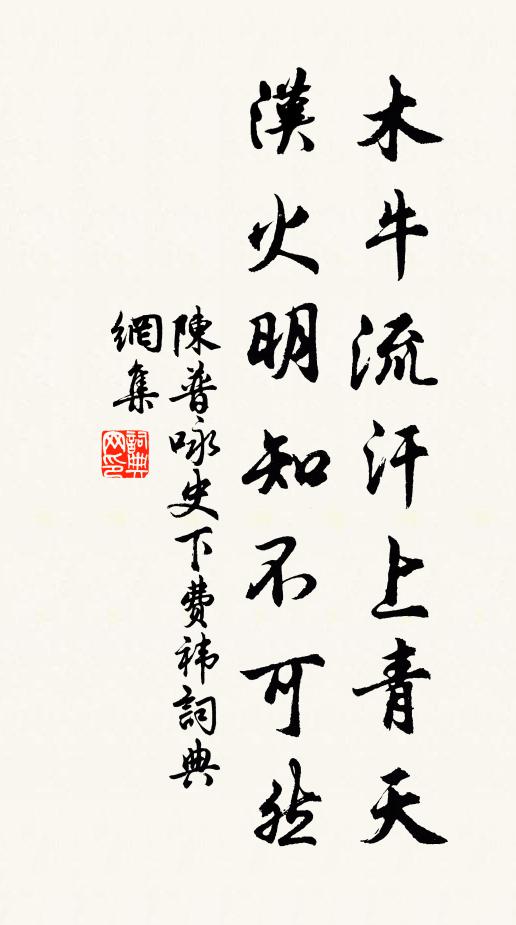 木牛流汗上青天
漢火明知不可然
陳普咏史下費禕詞典
網集
詞典
网印